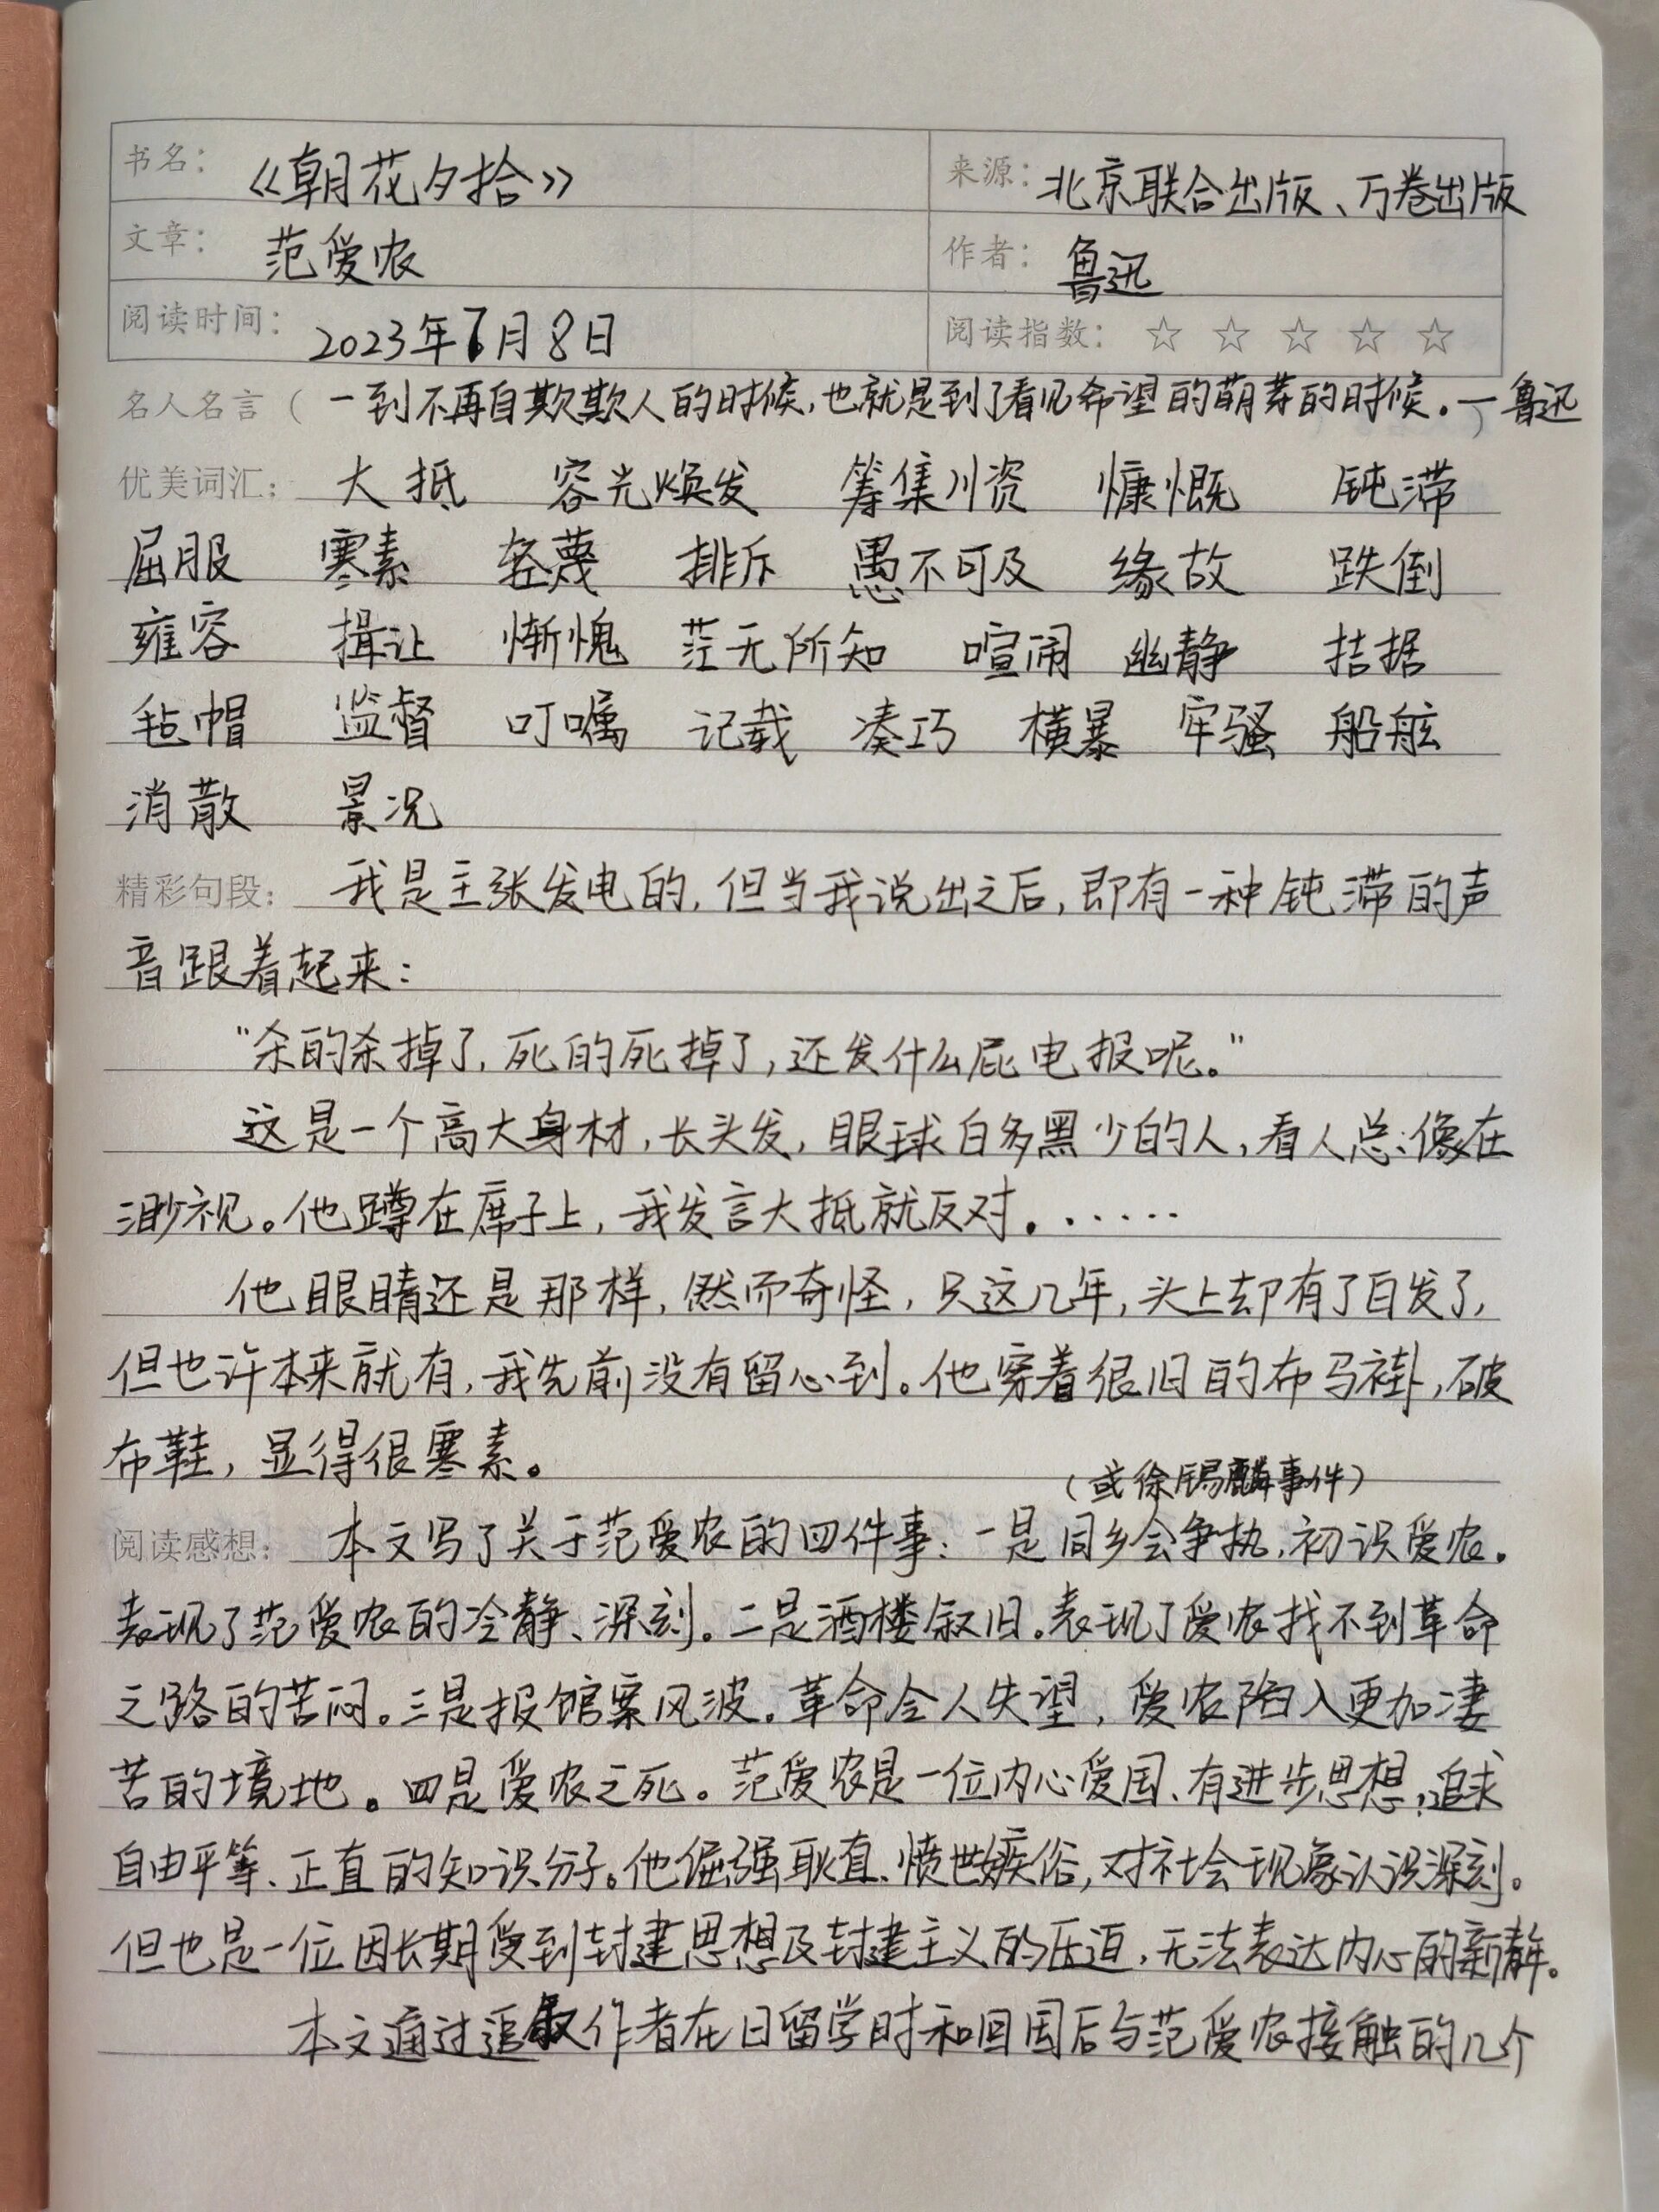 书名：《朝花夕拾》 来源：北京联合出版、万卷出版
文章：范爱农 作者：鲁迅
阅读时间：2023年7月8日 阅读指数：☆ ☆ ☆ ☆ ☆
名人名言（一到不再自欺欺人的时候，也就是到了看见希望的萌芽的时候。—鲁迅）
优美词汇：大抵 容光焕发 筹集川资 慷慨 钝滞
屈服 寒素 轻蔑 排斥 愚不可及 缘故 跌倒
雍容 揖让 惭愧 茫无所知 喧闹 幽静 拮据
毡帽 监督 叮嘱 记载 凑巧 横暴 牢骚 船舷
消散 景况
精彩句段：我是主张发电的，但当我说出之后，即有一种钝滞的声
音跟着起来：
“杀的杀掉了，死的死掉了，还发什么屁电报呢。”
这是一个高大身材，长头发，眼球白多黑少的人，看人总像在
渺视。他蹲在席子上，我发言大抵就反对。……
他眼睛还是那样，然而奇怪，只这几年，头上却有了白发了，
但也许本来就有，我先前没有留心到。他穿着很旧的布马褂，破
布鞋，显得很寒素。
（或徐锡麟事件）
阅读感想：本文写了关于范爱农的四件事：一是同乡会争执，初识爱农。
表现了范爱农的冷静、深刻。二是酒楼叙旧。表现了爱农找不到革命
之路的苦闷。三是报馆案风波。革命令人失望，爱农陷入更加凄
苦的境地。四是爱农之死。范爱农是一位内心爱国、有进步思想，追求
自由平等、正直的知识分子。他倔强耿直、愤世嫉俗，对社会现象认识深刻。
但也是一位因长期受到封建思想及封建主义的压迫，无法表达内心的新青年。
本文通过追叙作者在日留学时和回国后与范爱农接触的几个